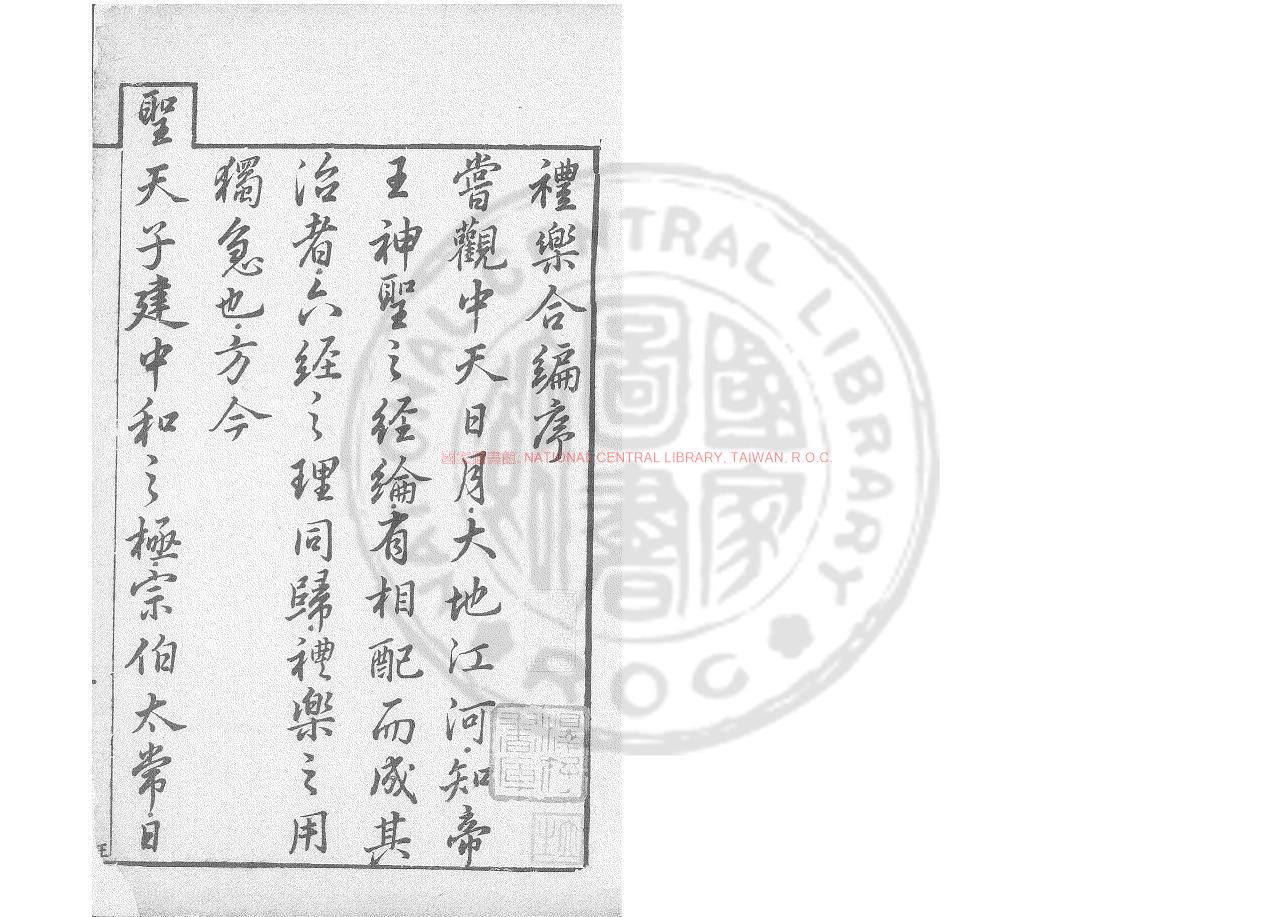 禮樂合編序
嘗觀中天日月大地江河知帝
王神聖之經綸有相配而成其
治者六經之理同歸禮樂之用
獨急也方今
聖天子建中和之極宗伯太常日
國家圖書館, NATIONAL CENTRAL LIBRARY, TAIWAN, R.O.C.
NATIONAL CENTRAL LIBRARY R.O.C. TAIWAN
國家圖書